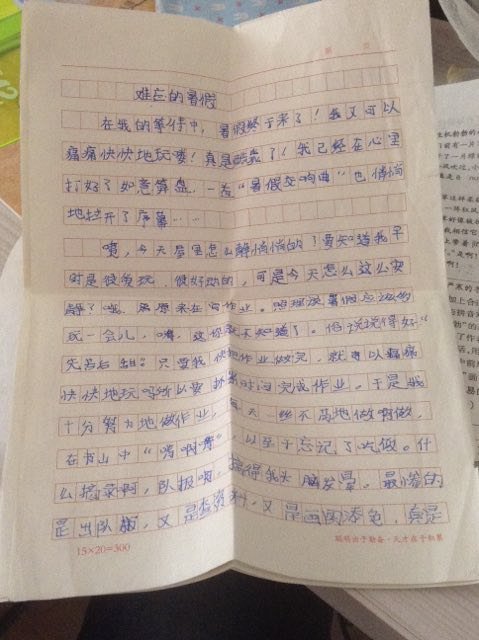 难忘的暑假
在我的等待中，暑假终于来了！我又可以
痛痛快快地玩喽！真是酷毙了！我已经在心里
打好了如意算盘，一首“暑假交响曲”也悄悄
地拉开了序幕……
咦，今天屋里怎么静悄悄的？要知道我平
时是很贪玩、很好动的，可是今天怎么这么安
静？哦，原来在写作业。照理说暑假应该多
玩一会儿，嘿，这你就不知道了。俗话说得好“
先苦后甜”只要我快地作业做完，就可以痛痛
快快地玩 所以要 时间完成作业。于是我
十分努力地做作业，每天一丝不苟地做啊做，
在书山中“啃啊啃”，以至于忘记了吃饭。什
么摘录啊，队报啊，搞得我头脑发晕。最惨的
是出队报，又是查资料，又是画图添色，真是
15×20=300